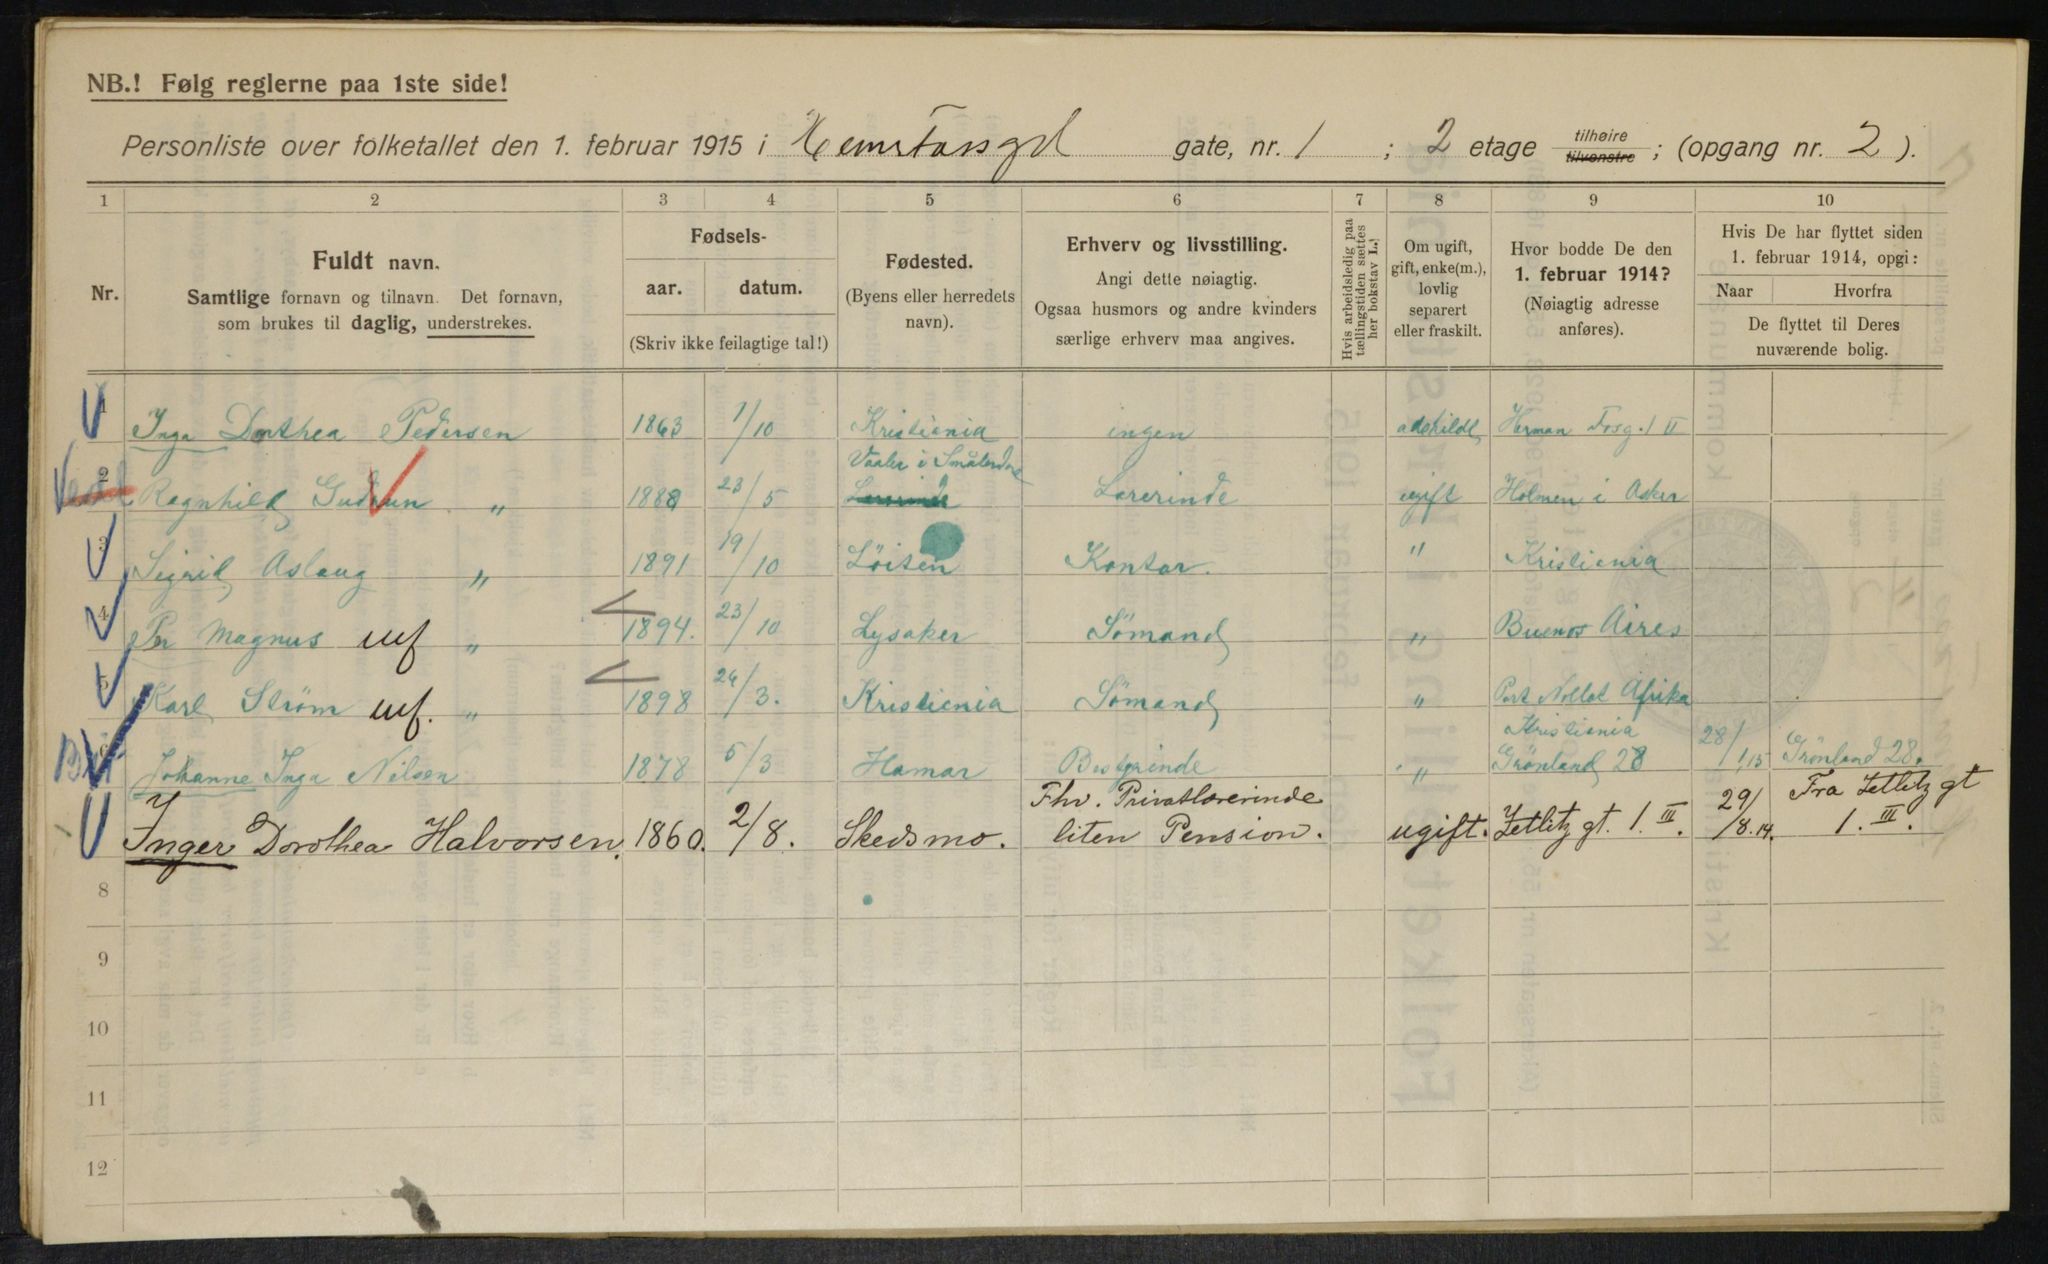 NB.! Følg reglerne paa 1ste side!
Personliste over folketallet den 1. februar 1915 i gate, nr. 1 ; 2 etage tilhøire tilvenstre ; (opgang nr. 2 ).
1 2 3 4 5 6 7 8 9 10
Nr. Fuldt navn. Samtlige fornavn og tilnavn. Det fornavn, som brukes til daglig, understrekes.
Fødsels- aar. datum. (Skriv ikke feilagtige tal!)
Fødested. (Byens eller herredets navn).
Erhverv og livsstilling. Angi dette nøiagtig. Ogsaa husmors og andre kvinders særlige erhverv maa angives.
Hvis arbeidsledig paa tællingstiden sættes her bokstav L.!
Om ugift, gift, enke(m.), lovlig separert eller fraskilt.
Hvor bodde De den 1. februar 1914? (Nøiagtig adresse anføres).
Hvis De har flyttet siden 1. februar 1914, opgi: Naar Hvorfra De flyttet til Deres nuværende bolig.
1 Inga Dorthea Pedersen 1863 1/10 Kristiania ingen adskildt Herman Fosg. 1 II
2 Ragnhild Gudrun " 1888 23/5 Vaaler i Smålendene Lærerinde ugift Holmen i Asker
3 Sigrid Aslaug " 1891 19/10 Løiten Kontor. " Kristiania
4 Per Magnus " 1894. 23/10 Lysaker Sömand " Buenos Aires
5 Karl Strøm " 1898 24/3. Kristiania Sömand " Port Nollot Afrika
6 Johanne Inga Nilsen 1878 5/3 Hamar " Kristiania Grönland 28 28/1.15 Grönland 28.
Inger Dorothea Halvorsen. 1860. 2/8. Skedsmo. Fhv. Privatlærerinde liten Pension. ugift. Zetlitz gt. 1. III. 29/8.14. Fra Zetlitz gt 1. III.
8
9
10
11
12